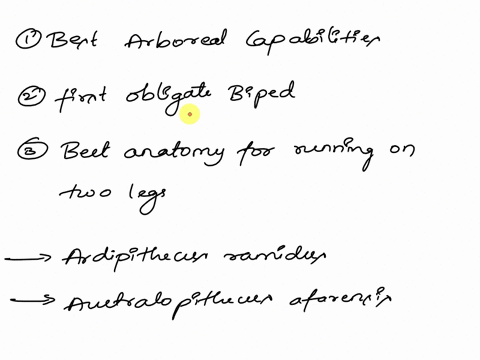 ① Best Arboreal Capabilities
② first obligate Biped
③ Best anatomy for running on
two legs
→ Ardipithecus ramidus
→ Australopithecus aforensis